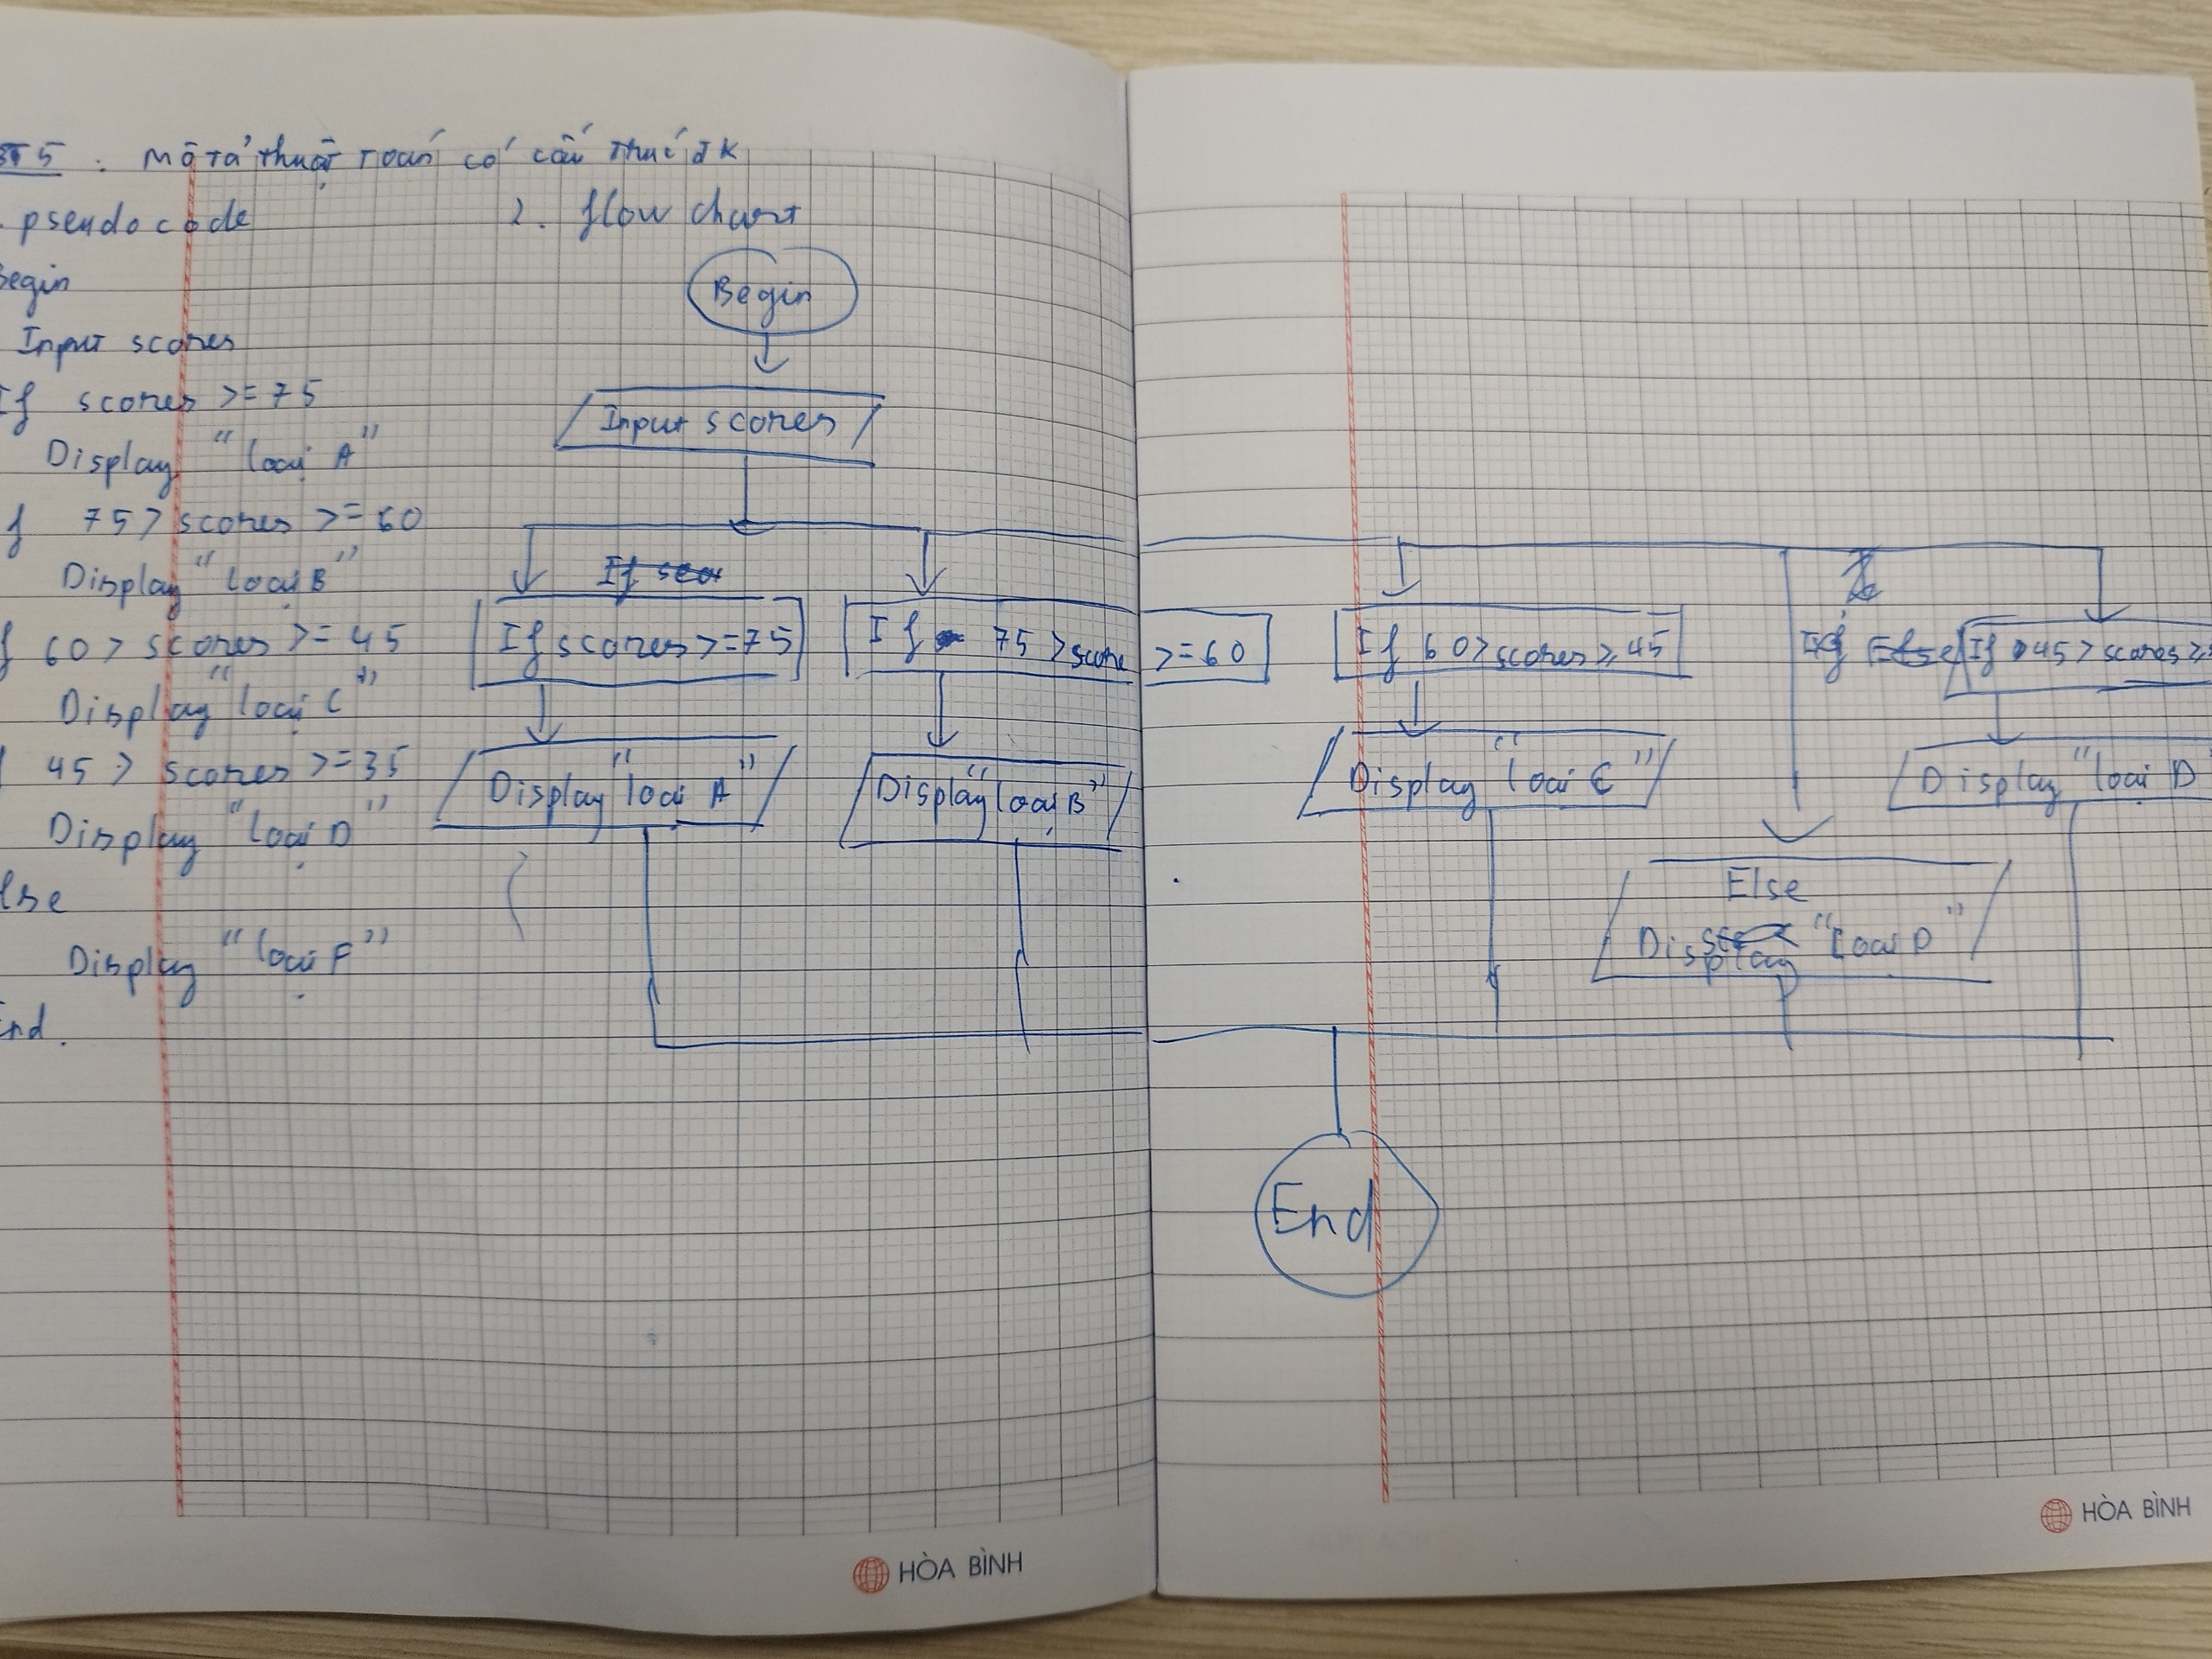 BT5 : Mô tả thuật toán có cấu thúc đk
pseudo code
2. flow chart
Begin
Input scores
If scores >=75
Display "loại A"
75> scores >=60
Display "loại B"
60> scores >= 45
Display "loại C"
45> scores >=35
Display "loại D"
Else
Display "loại F"
End.
Begin
Input scores
If scores >=75
If 75 >score >=60
If 60>scores≥45
If 45> scores≥
Display "loai A"
Display "loại B"
Display "loai C"
Display "loai D
Else
Display "loai D"
End
HÒA BÌNH
HÒA BÌNH